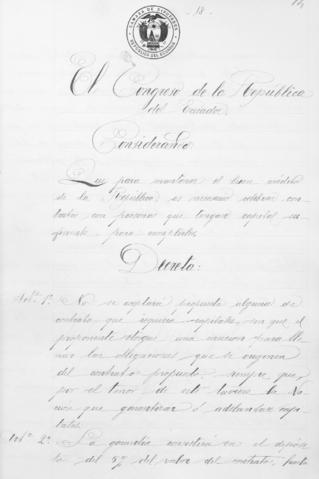 CAMARA DE DIPUTADOS
REPUBLICA DEL ECUADOR
- 18 -
El Congreso de la República
del Ecuador
Considerando
Que para mantener el buen crédito
de la República es necesario celebrar con-
tratos con personas que tengan capital su-
ficiente para cumplirlos
Decreta:
Art.º 1º No se aceptará propuesta alguna de
contrato que requiera capitales, sin que el
proponente otorgue una caucion para lle-
nar las obligaciones que se originen
del contrato propuesto, siempre que,
por el tenor de este tuviere la Na-
cion que garantizar ó adelantar capi-
tales.
Art.º 2º La garantía consistirá en el depósi-
to del 5% del valor del contrato,